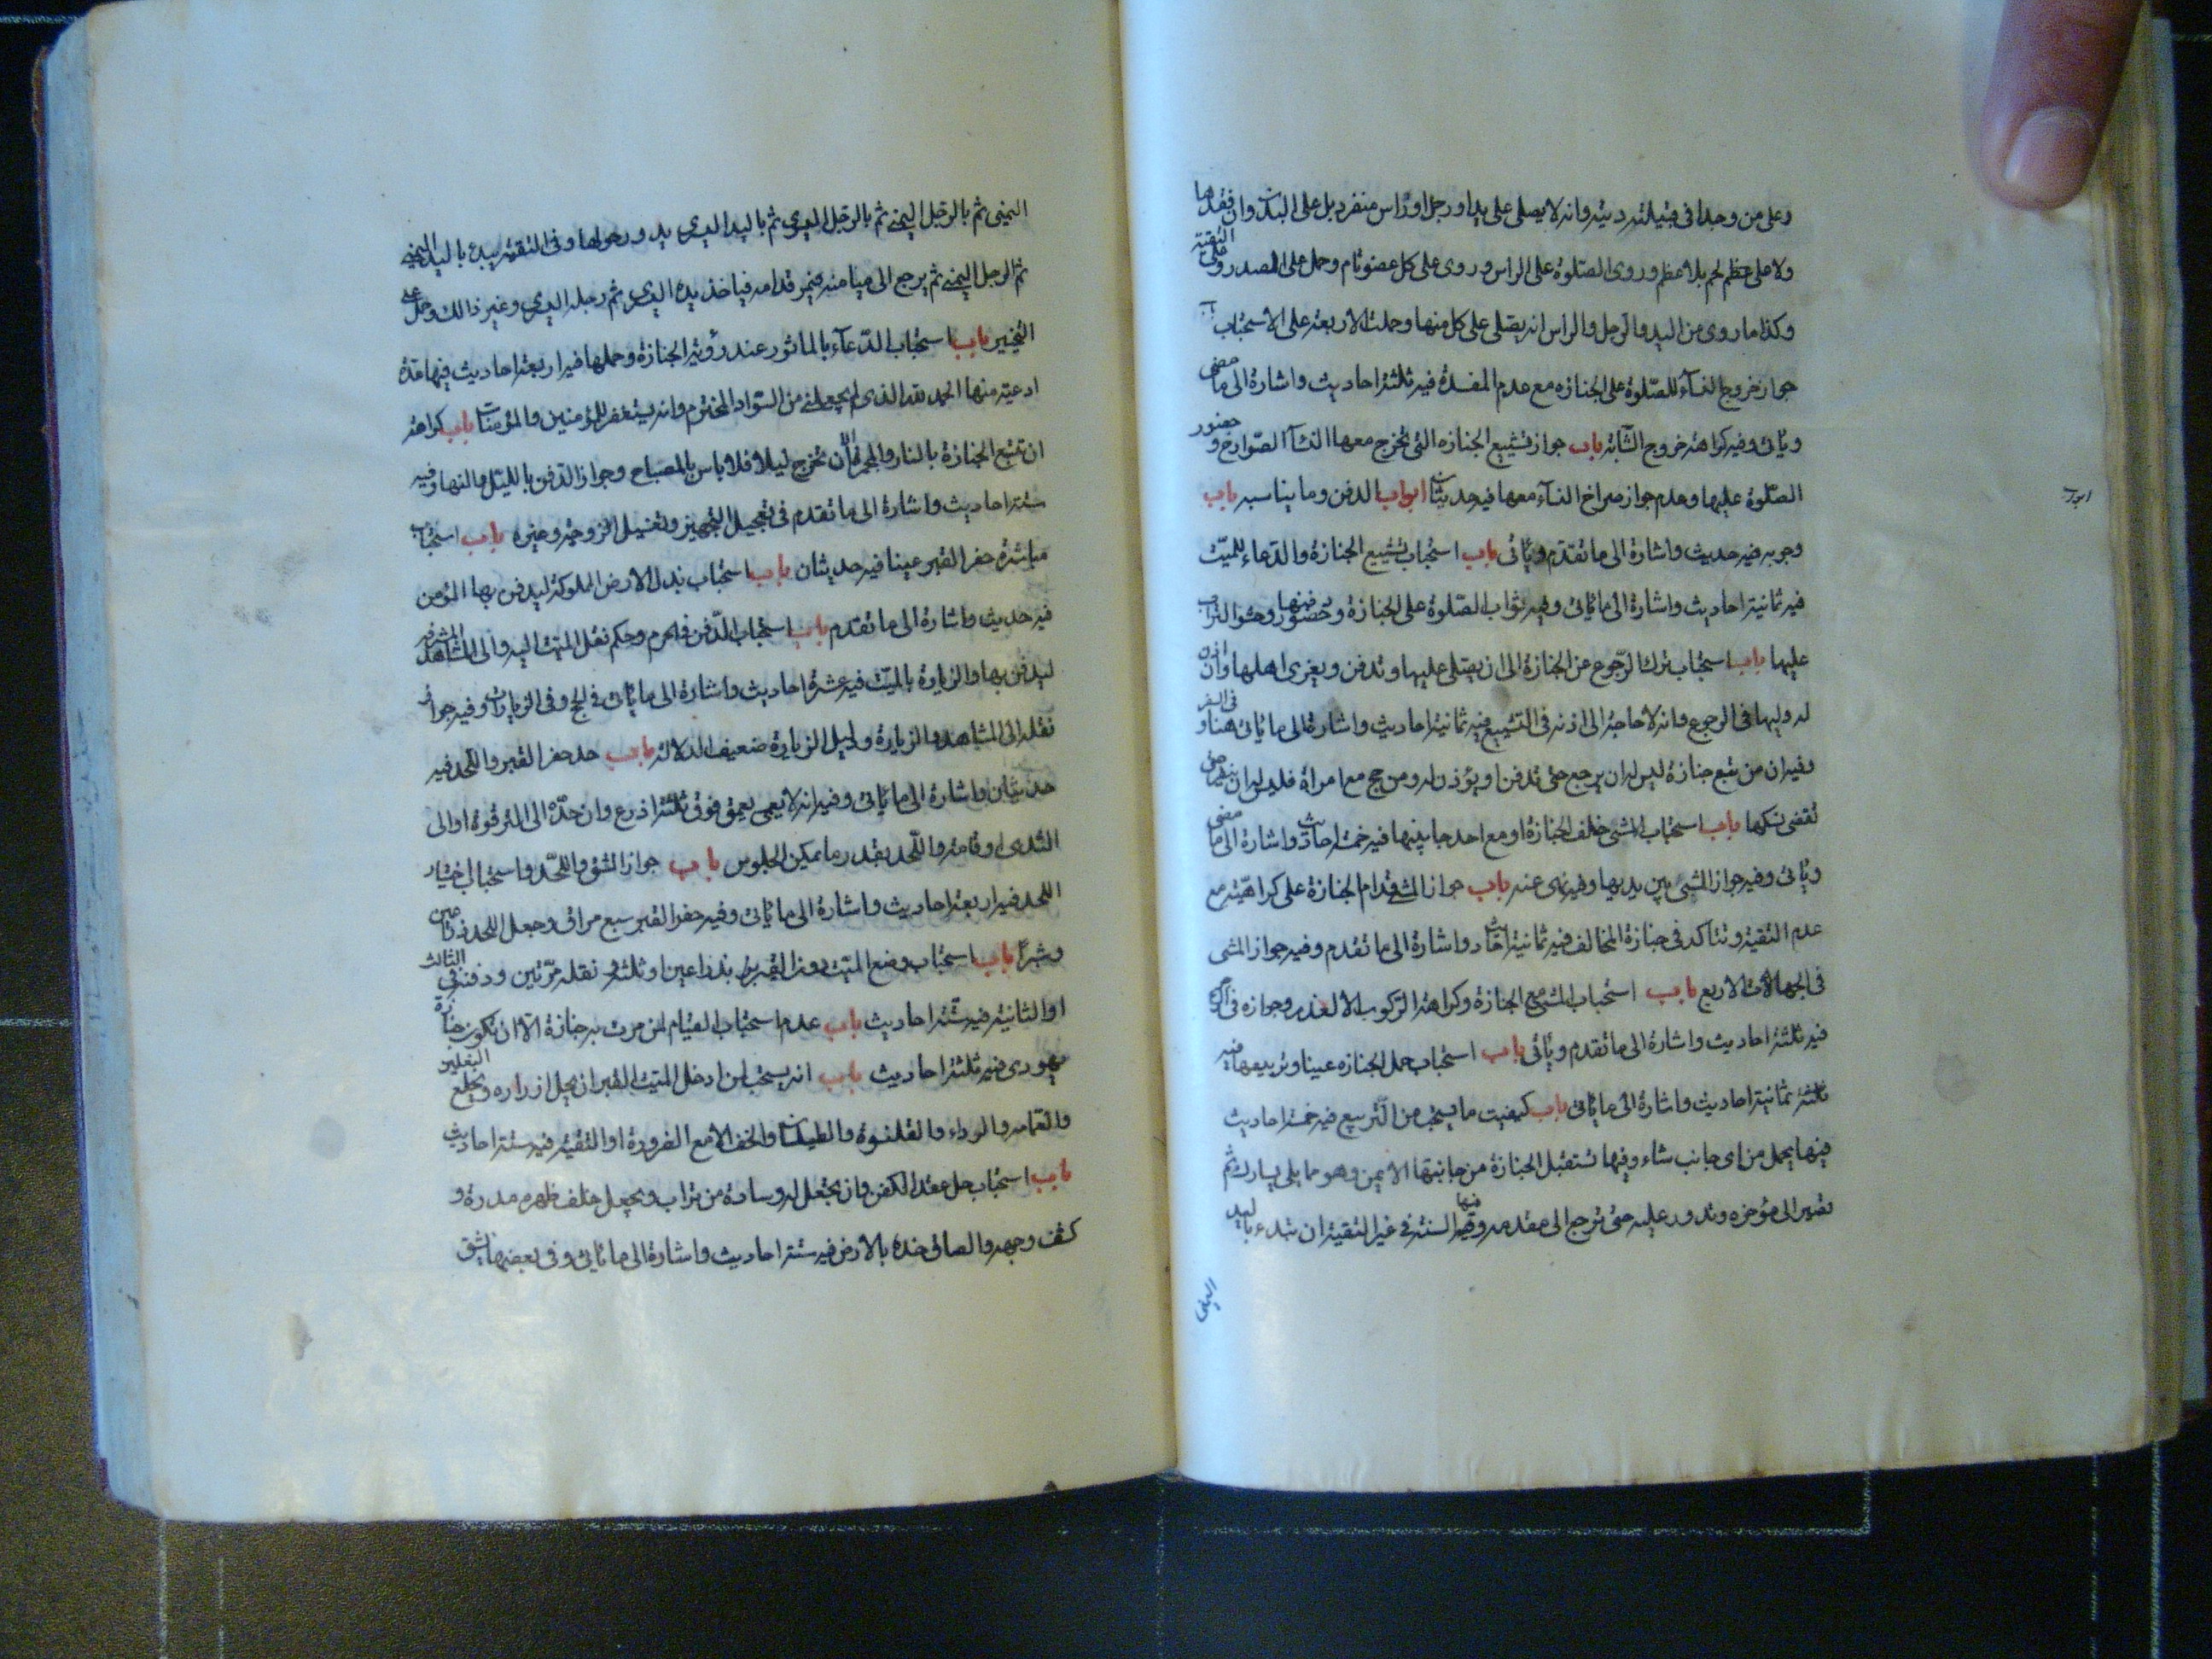 وعلى من وجدا في قبيلته ديته وانه لا يصلى على يد او رجل او راس منفرد بل على البدن وان فقدها
ولا على عظم لحم بلا عظم وروى الصلوة على الراس وروى على كل عضو تام وحمل على الصدر وعلى التقية
وكذا ما روى من اليد والرجل والراس انه يصلى على كل منها وحملت الاربعة على الاستحباب
جواز خروج النسآء للصلوة على الجنازه مع عدم المفسدة فيه ثلثة احاديث واشارة الى ما مضى
وياتى وفيه كراهة خروج الشابة باب جواز تشييع الجنازه التى تخرج معها النسآ الصوارخ وحضور
الصلوة عليها وعدم جواز صراخ النسآء معها فيه حديثان ابواب الدفن وما يناسبه باب
وجوبه فيه حديث واشارة الى ما تقدم وياتى باب استحباب تشييع الجنازة والدعاء للميت
فيه ثمانية احاديث واشارة الى ما ياتى وفيه ثواب الصلوة على الجنازة وحضور دفنها وحثو التراب
عليها باب استحباب ترك الرجوع عن الجنازة الى ان يصلى عليها وتدفن ويعزى اهلها وان اذن
له وليها فى الرجوع وانه لا حاجة الى اذنه فى التشييع فيه ثمانية احاديث واشارة الى ما ياتى هنا وفى السفر
وفيه ان من تبع جنازة ليس له ان يرجع حتى تدفن او يؤذن له ومن حج مع امراة فليس له ان ينفر حتى
تقضى نسكها باب استحباب المشى خلف الجنازة او مع احد جانبيها فيه خمسة احاديث واشارة الى ما مضى
وياتى وفيه جواز المشى بين يديها وفيه نهى عنه باب جواز المشى قدام الجنازة على كراهية مع
عدم التقية وتتاكد فى جنازة المخالف فيه ثمانية احاديث واشارة الى ما تقدم وفيه جواز المشى
فى الجهات الاربع باب استحباب المشى مع الجنازة وكراهة الركوب الا لعذر وجوازه فى
فيه ثلثة احاديث واشارة الى ما تقدم وياتى باب استحباب حمل الجنازه عينا وتربيعها فيه
ثمانية احاديث واشارة الى ما ياتى باب كيفيت ما يستحب من التربيع فيه خمسة احاديث
فيها يحمل من اى جانب شاء وفيها تستقبل الجنازة من جانبها الايمن وهو مما يلى يسارك ثم
تصير الى مؤخره وتدور عليه حتى ترجع الى مقدمه وفيها السنة فى غير التقية ان تبدء باليد
اليمنى
ابواب
اليمنى ثم بالرجل اليمنى ثم بالرجل اليسرى ثم باليد اليسرى يدور حولها وفى التقية يبدء باليد اليمنى
ثم الرجل اليمنى ثم يرجع الى ميامنه فيمر قدامه فياخذ يده اليسرى ثم رجله اليسرى وغير ذالك وحمل على
التخيير باب استحباب الدعآء بالماثور عند رؤية الجنازة وحملها فيه اربعة احاديث فيها عدة
ادعية منها الحمد لله الذى لم يجعلنى من السواد المخترم وانه يستغفر للمؤمنين والمؤمنات باب كراهة
ان تتبع الجنازة بالنار والمجمرة الا ان تخرج ليلا فلا باس بالمصباح وجواز الدفن بالليل والنهار وفيه
ستة احاديث واشارة الى ما تقدم فى تعجيل التجهيز وتغسيل الزوجة وغيره باب استحباب
مباشرة حفر القبر عينا فيه حديثان باب استحباب بذل الارض المملوكة ليدفن بها المؤمن
فيه حديث واشارة الى ما تقدم باب استحباب الدفن فى الحرم وحكم نقل الميت اليه والى المشاهد المشرفة
ليدفن بها والزيارة بالميت فيه عشرة احاديث واشارة الى ما ياتى فى الحج وفى الزيارات وفيه جواز
نقله الى المشاهد والزيارة ودليل الزيارة ضعيف الدلالة باب حد حفر القبر واللحد فيه
حديثان واشارة الى ما ياتى وفيه انه لا يعمق فوق ثلثة اذرع وان حده الى الترقوة او الى
الثدى او قامة واللحد بقدر ما يمكن الجلوس باب جواز الشق واللحد واستحباب اختيار
اللحد فيه اربعة احاديث واشارة الى ما ياتى وفيه حفر القبر سبع مراقى وجعل اللحد ذراعين
وشبرا باب استحباب وضع الميت دون القبر بذراعين او ثلثة ونقله مرتين ودفنه فى الثالثة
او الثانية فيه ستة احاديث باب عدم استحباب القيام لمن مرت به جنازة الا ان تكون جنازة
يهودى فيه ثلثة احاديث باب انه يستحب لمن ادخل الميت القبر ان يحل ازراره ويخلع النعلين
والعمامة والرداء والقلنسوة والطيلسان والخف الا مع الضرورة او التقية فيه ستة احاديث
باب استحباب حل عقد الكفن وان يجعل له وسادة من تراب ويجعل خلف ظهره مدرة و
كشف وجهه والصاق خده بالارض فيه ستة احاديث واشارة الى ما ياتى وفى بعضها يشق